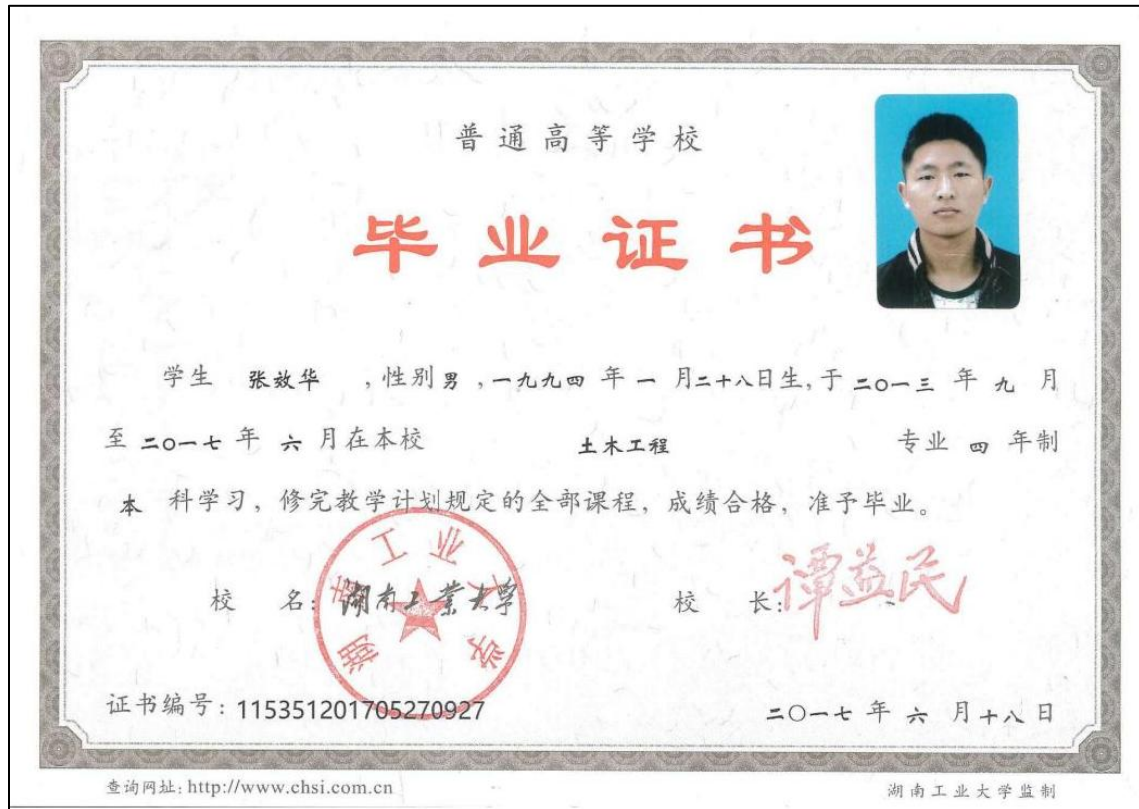 普通高等学校
毕业证书
学生 张效华 ,性别 男 ,一九九四 年 一 月二十八日生,于 二〇一三 年 九 月
至 二〇一七 年 六 月在本校 土木工程 专业 四 年制
本 科学习，修完教学计划规定的全部课程，成绩合格，准予毕业。
校 名: 湖南工业大学 校 长: 谭益民
湖南工业大学
证书编号: 115351201705270927 二〇一七 年 六 月十八日
查询网址: http://www.chsi.com.cn 湖南工业大学监制